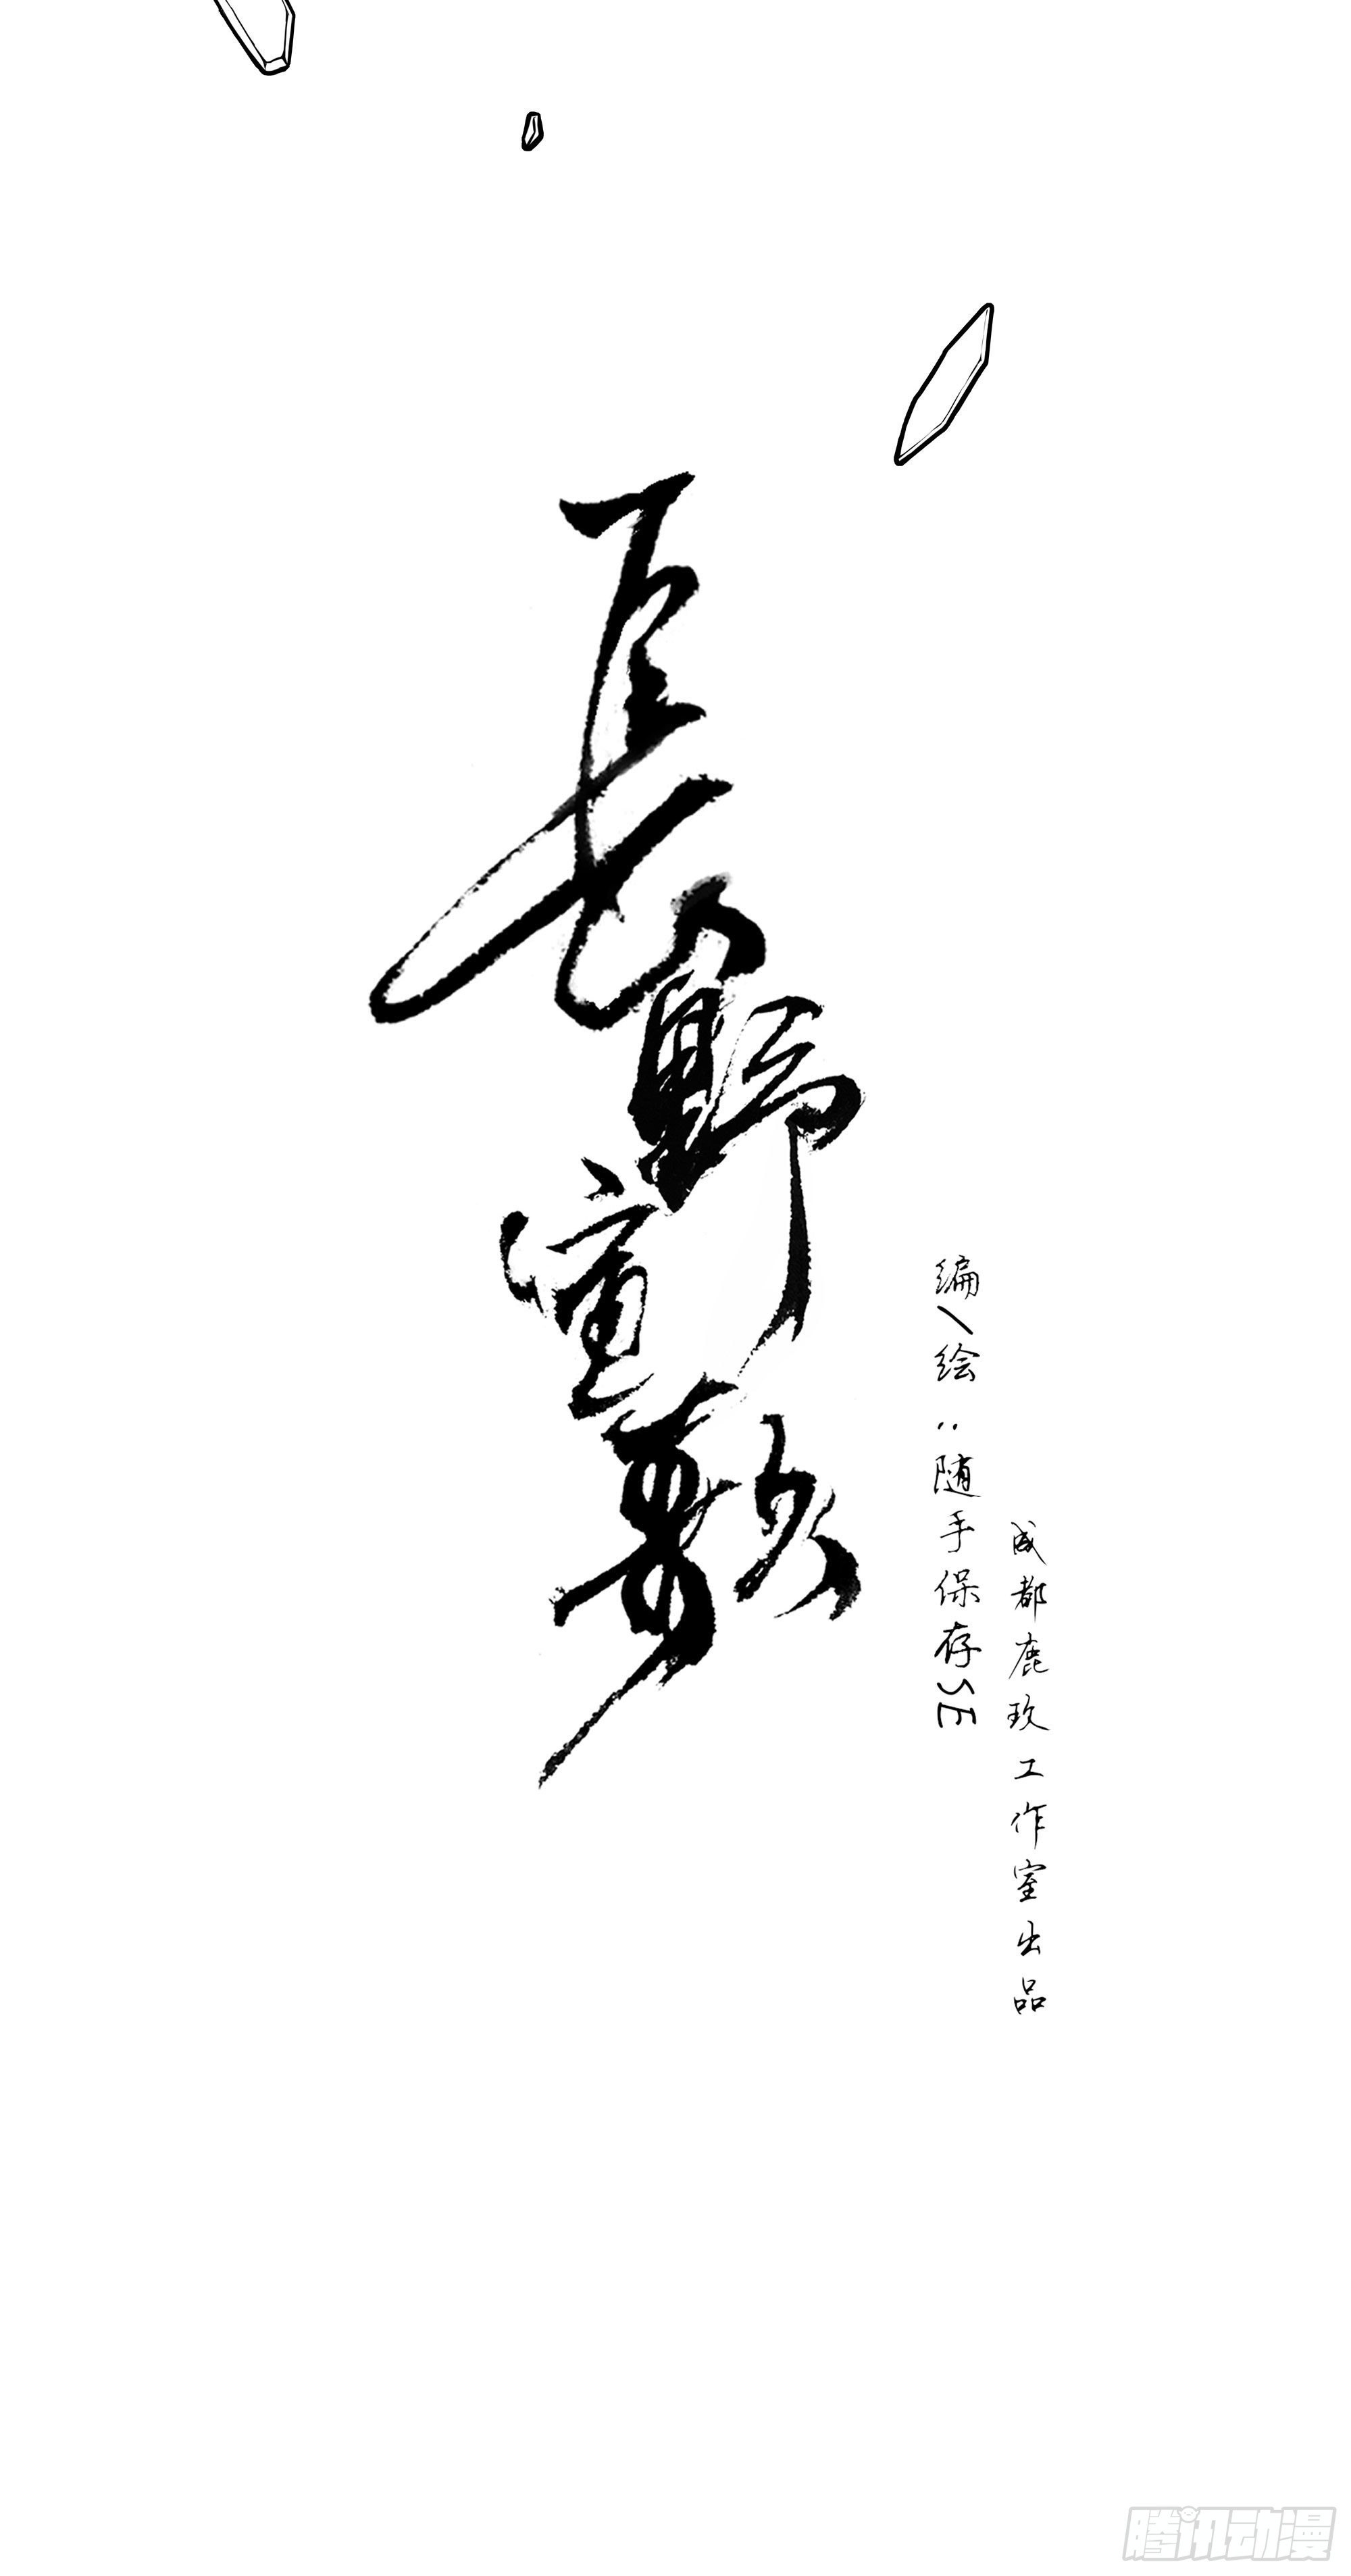 長野宣敷
编/绘:随手保存SE
成都鹿玫工作室出品
腾讯动漫